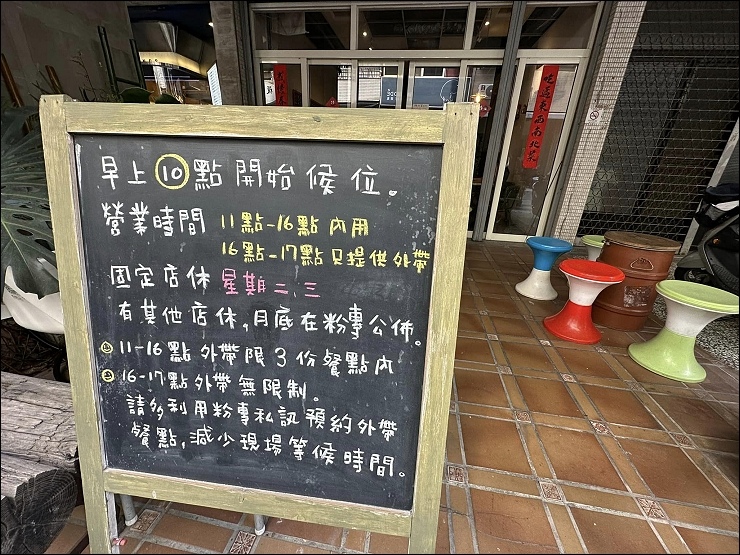 早上⑩點開始候位。
營業時間 11點-16點 內用
16點-17點只提供外帶
固定店休 星期二、三
有其他店休,月底在粉專公佈。
11-16點外帶限3份餐點內
16-17點外帶無限制。
請多利用粉專私訊預約外帶
餐點,減少現場等候時間。
吃遍東西南北菜